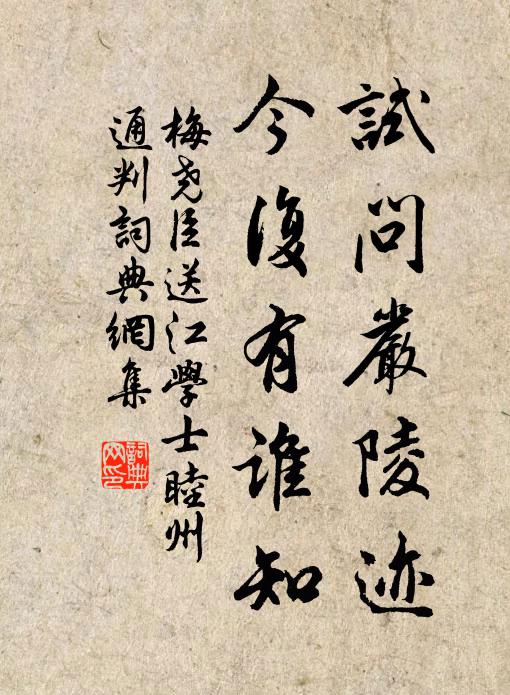 試問嚴陵迹
今復有誰知
梅堯臣送江學士睦州
通判詞典網集
詞典網印